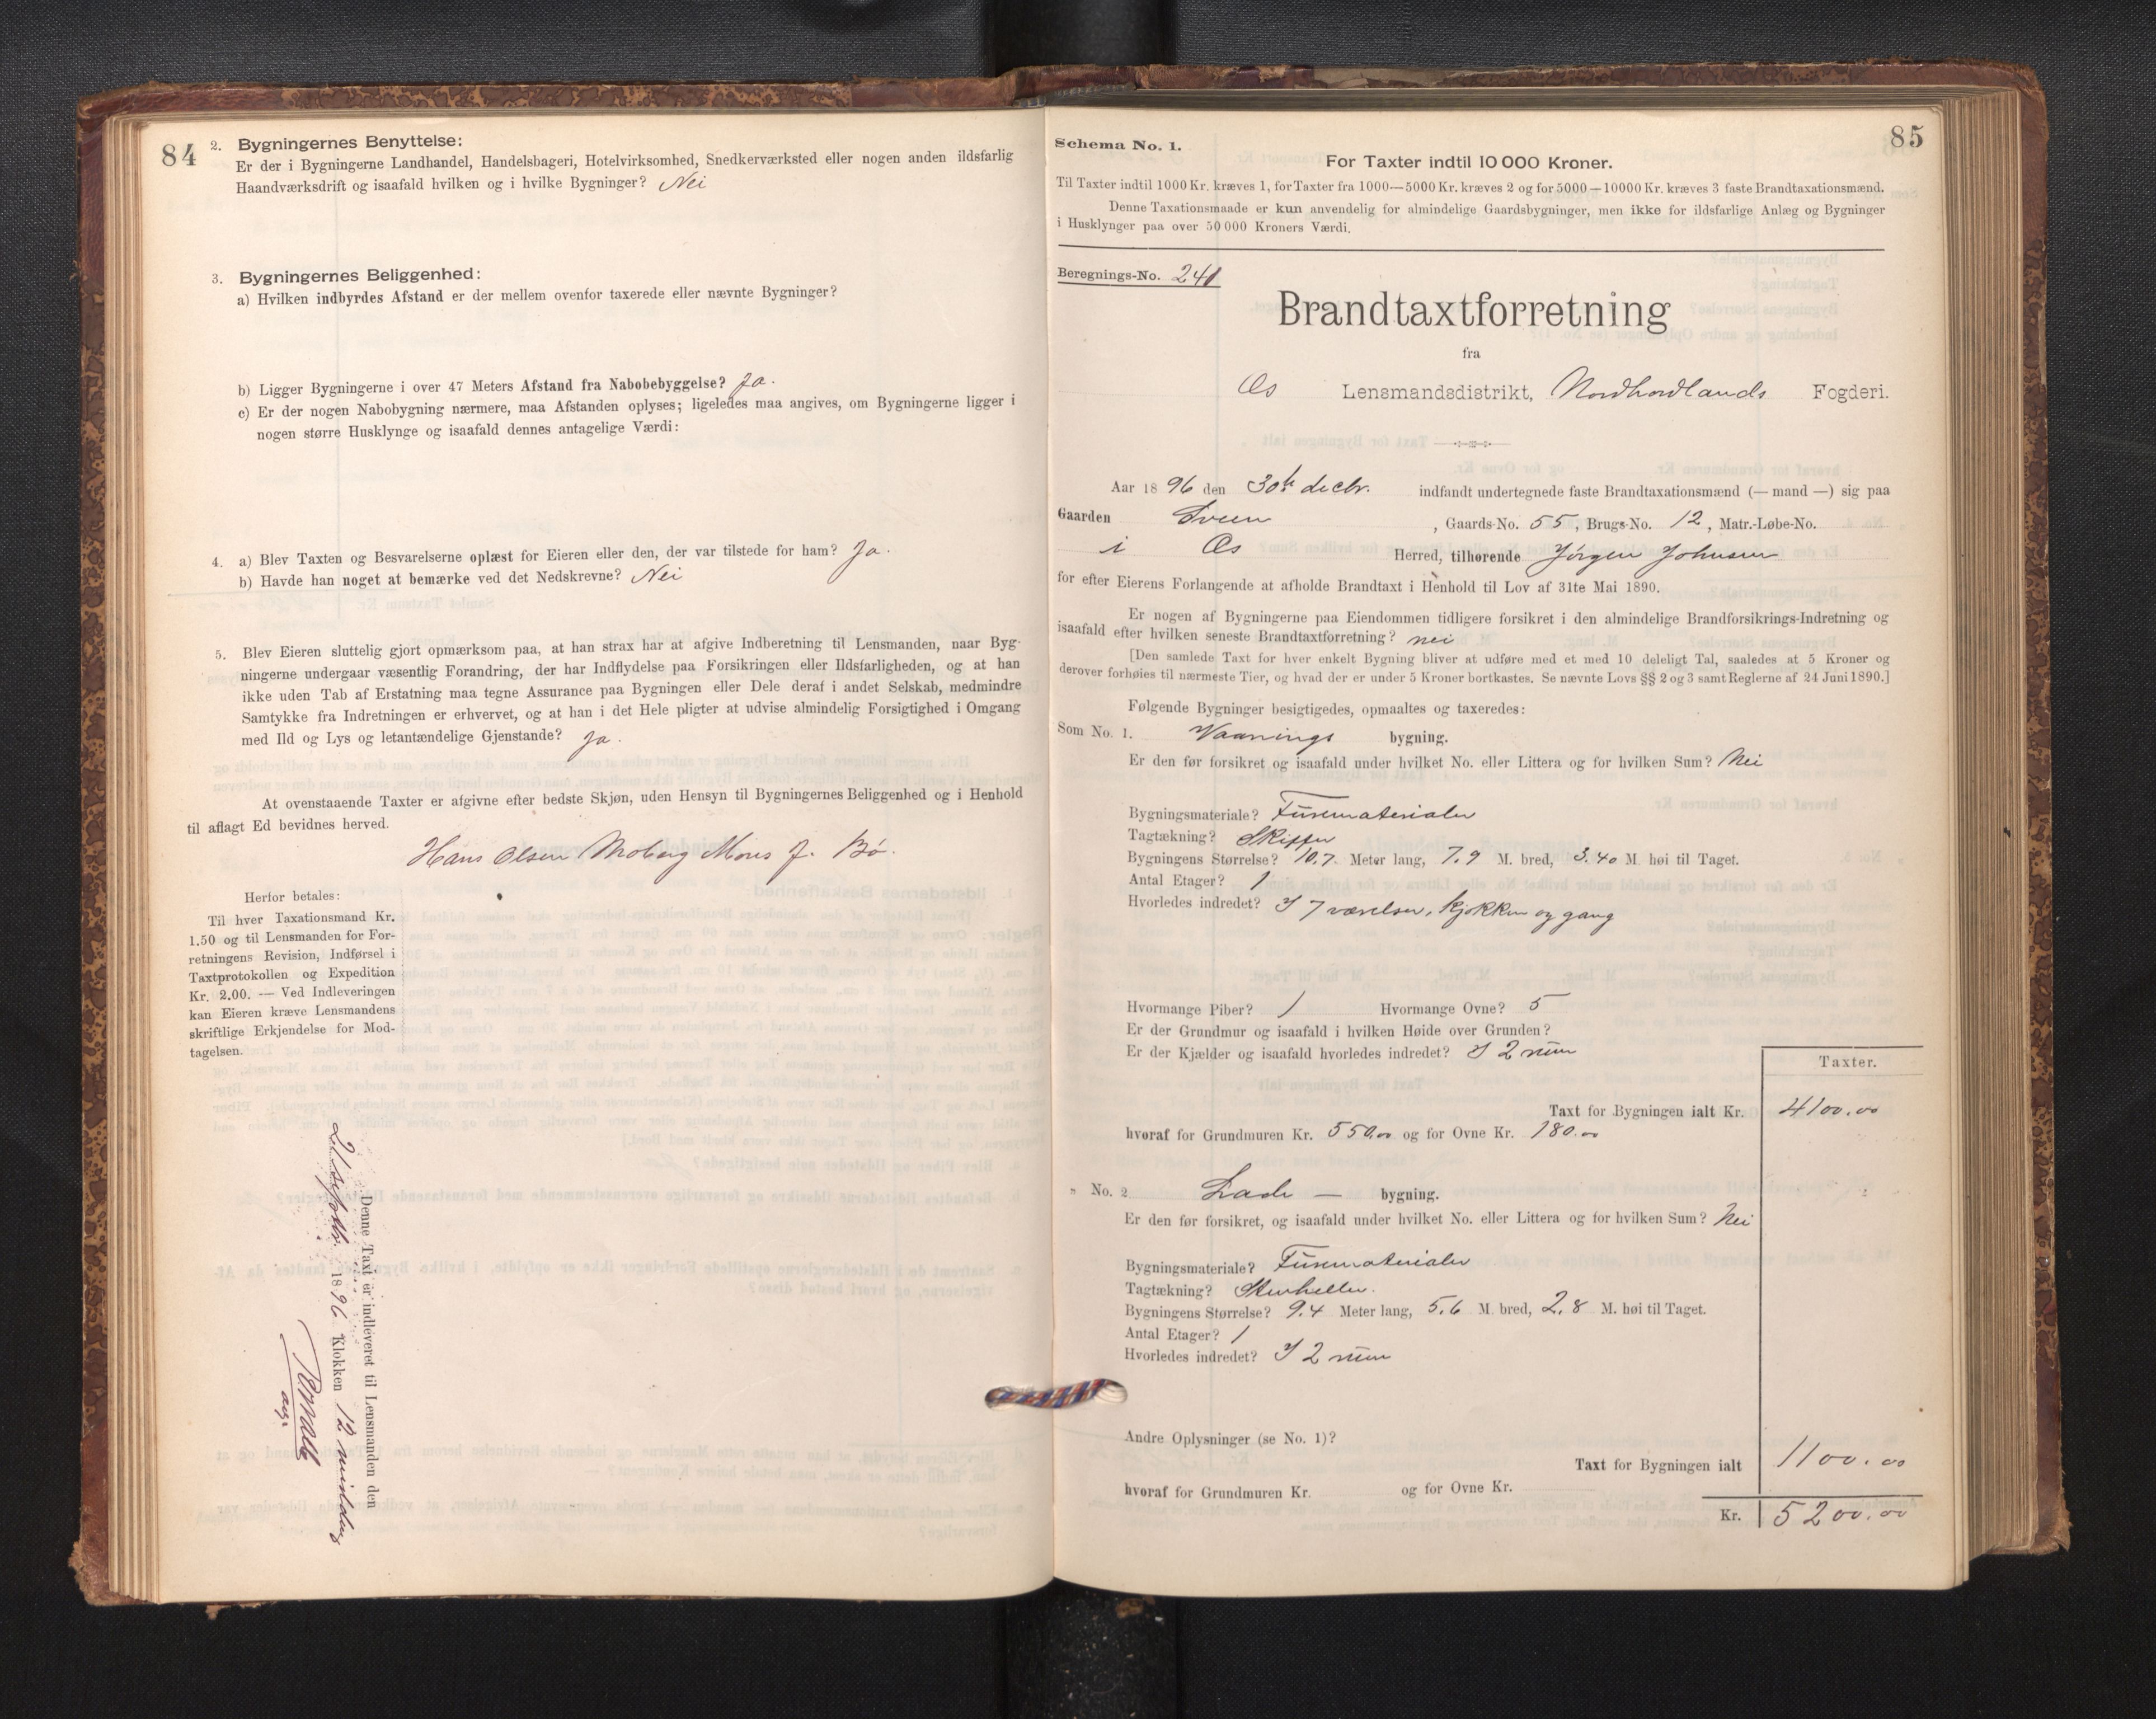 84
2. Bygningernes Benyttelse:
Er der i Bygningerne Landhandel, Handelsbageri, Hotelvirksomhed, Snedkerværksted eller nogen anden ildsfarlig
Haandværksdrift og isaafald hvilken og i hvilke Bygninger? Nei
3. Bygningernes Beliggenhed:
a) Hvilken indbyrdes Afstand er der mellem ovenfor taxerede eller nævnte Bygninger?
b) Ligger Bygningerne i over 47 Meters Afstand fra Nabobebyggelse? Ja.
c) Er der nogen Nabobygning nærmere, maa Afstanden oplyses; ligeledes maa angives, om Bygningerne ligger i
nogen større Husklynge og isaafald dennes antagelige Værdi:
4. a) Blev Taxten og Besvarelserne oplæst for Eieren eller den, der var tilstede for ham? Ja.
b) Havde han noget at bemærke ved det Nedskrevne? Nei
5. Blev Eieren sluttelig gjort opmærksom paa, at han strax har at afgive Indberetning til Lensmanden, naar Byg-
ningerne undergaar væsentlig Forandring, der har Indflydelse paa Forsikringen eller Ildsfarligheden, og at han
ikke uden Tab af Erstatning maa tegne Assurance paa Bygningen eller Dele deraf i andet Selskab, medmindre
Samtykke fra Indretningen er erhvervet, og at han i det Hele pligter at udvise almindelig Forsigtighed i Omgang
med Ild og Lys og letantændelige Gjenstande? Ja.
At ovenstaaende Taxter er afgivne efter bedste Skjøn, uden Hensyn til Bygningernes Beliggenhed og i Henhold
til aflagt Ed bevidnes herved.
Hans Olsen Moberg Mons J. Bø.
Herfor betales:
Til hver Taxationsmand Kr.
1.50 og til Lensmanden for For-
retningens Revision, Indførsel i
Taxtprotokollen og Expedition
Kr. 2.00. — Ved Indleveringen
kan Eieren kræve Lensmandens
skriftlige Erkjendelse for Mod-
tagelsen.
Denne Taxt er indleveret til Lensmanden den
1896 Klokken 12 middag
85
Schema No. 1.
For Taxter indtil 10 000 Kroner.
Til Taxter indtil 1000 Kr. kræves 1, for Taxter fra 1000—5000 Kr. kræves 2 og for 5000—10000 Kr. kræves 3 faste Brandtaxationsmænd.
Denne Taxationsmaade er kun anvendelig for almindelige Gaardsbygninger, men ikke for ildsfarlige Anlæg og Bygninger
i Husklynger paa over 50 000 Kroners Værdi.
Beregnings-No. 241
Brandtaxtforretning
fra
Os Lensmandsdistrikt, Nordhordlands Fogderi.
Aar 1896 den 30te decbr. indfandt undertegnede faste Brandtaxationsmænd (— mand —) sig paa
Gaarden Sveen, Gaards-No. 55, Brugs-No. 12, Matr.-Løbe-No.
i Os Herred, tilhørende Jørgen Johnsen
for efter Eierens Forlangende at afholde Brandtaxt i Henhold til Lov af 31te Mai 1890.
Er nogen af Bygningerne paa Eiendommen tidligere forsikret i den almindelige Brandforsikrings-Indretning og
isaafald efter hvilken seneste Brandtaxtforretning? nei
[Den samlede Taxt for hver enkelt Bygning bliver at udføre med et med 10 deleligt Tal, saaledes at 5 Kroner og
derover forhøies til nærmeste Tier, og hvad der er under 5 Kroner bortkastes. Se nævnte Lovs §§ 2 og 3 samt Reglerne af 24 Juni 1890.]
Følgende Bygninger besigtigedes, opmaaltes og taxeredes:
Som No. 1. Vaanings bygning.
Er den før forsikret og isaafald under hvilket No. eller Littera og for hvilken Sum? Nei
Bygningsmateriale? Furumaterialer
Tagtækning? Skiffer
Bygningens Størrelse? 10.7. Meter lang, 7.9 M. bred, 3.40 M. høi til Taget.
Antal Etager? 1
Hvorledes indredet? I 7 værelser, kjøkken og gang
Hvormange Piber? 1 Hvormange Ovne? 5
Er der Grundmur og isaafald i hvilken Høide over Grunden?
Er der Kjælder og isaafald hvorledes indredet? I 2 rum
Taxter.
Taxt for Bygningen ialt Kr. 4100.00
hvoraf for Grundmuren Kr. 550.00 og for Ovne Kr. 180.00
" No. 2 Lade — bygning.
Er den før forsikret, og isaafald under hvilket No. eller Littera og for hvilken Sum? Nei
Bygningsmateriale? Furumaterialer
Tagtækning? Stenheller.
Bygningens Størrelse? 9.4 Meter lang, 5.6 M. bred, 2.8 M. høi til Taget.
Antal Etager? 1
Hvorledes indredet? I 2 rum
Andre Oplysninger (se No. 1)?
Taxt for Bygningen ialt 1100.00
hvoraf for Grundmuren Kr. og for Ovne Kr.
Kr. 5200.00